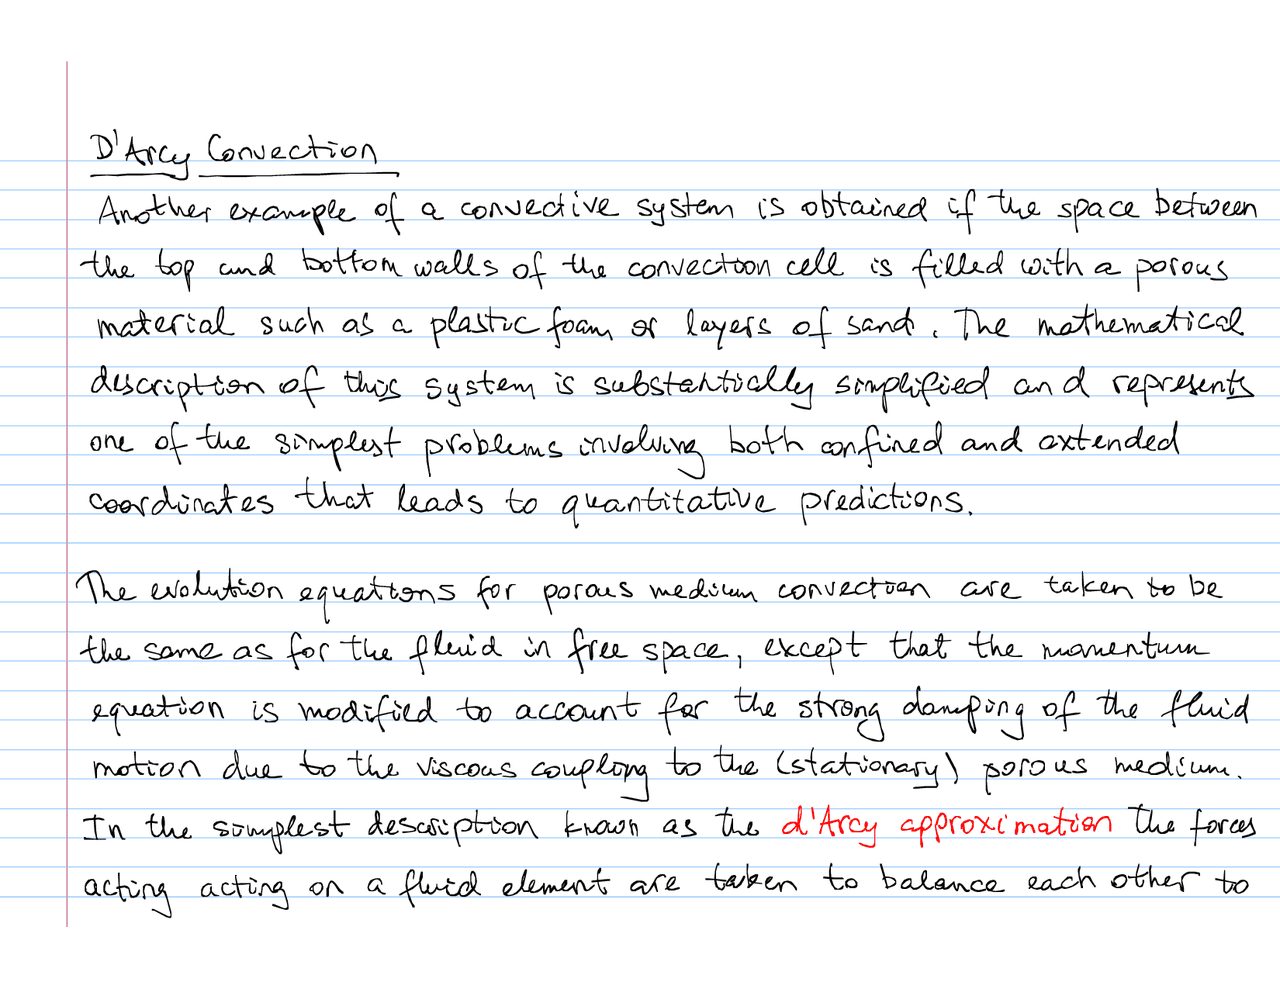 D'Arcy Convection
Another example of a convective system is obtained if the space between
the top and bottom walls of the convection cell is filled with a porous
material such as a plastic foam or layers of sand. The mathematical
description of this system is substantially simplified and represents
one of the simplest problems involving both confined and extended
coordinates that leads to quantitative predictions.
The evolution equations for porous medium convection are taken to be
the same as for the fluid in free space, except that the momentum
equation is modified to account for the strong damping of the fluid
motion due to the viscous coupling to the (stationary) porous medium.
In the simplest description known as the d'Arcy approximation the forces
acting acting on a fluid element are taken to balance each other to